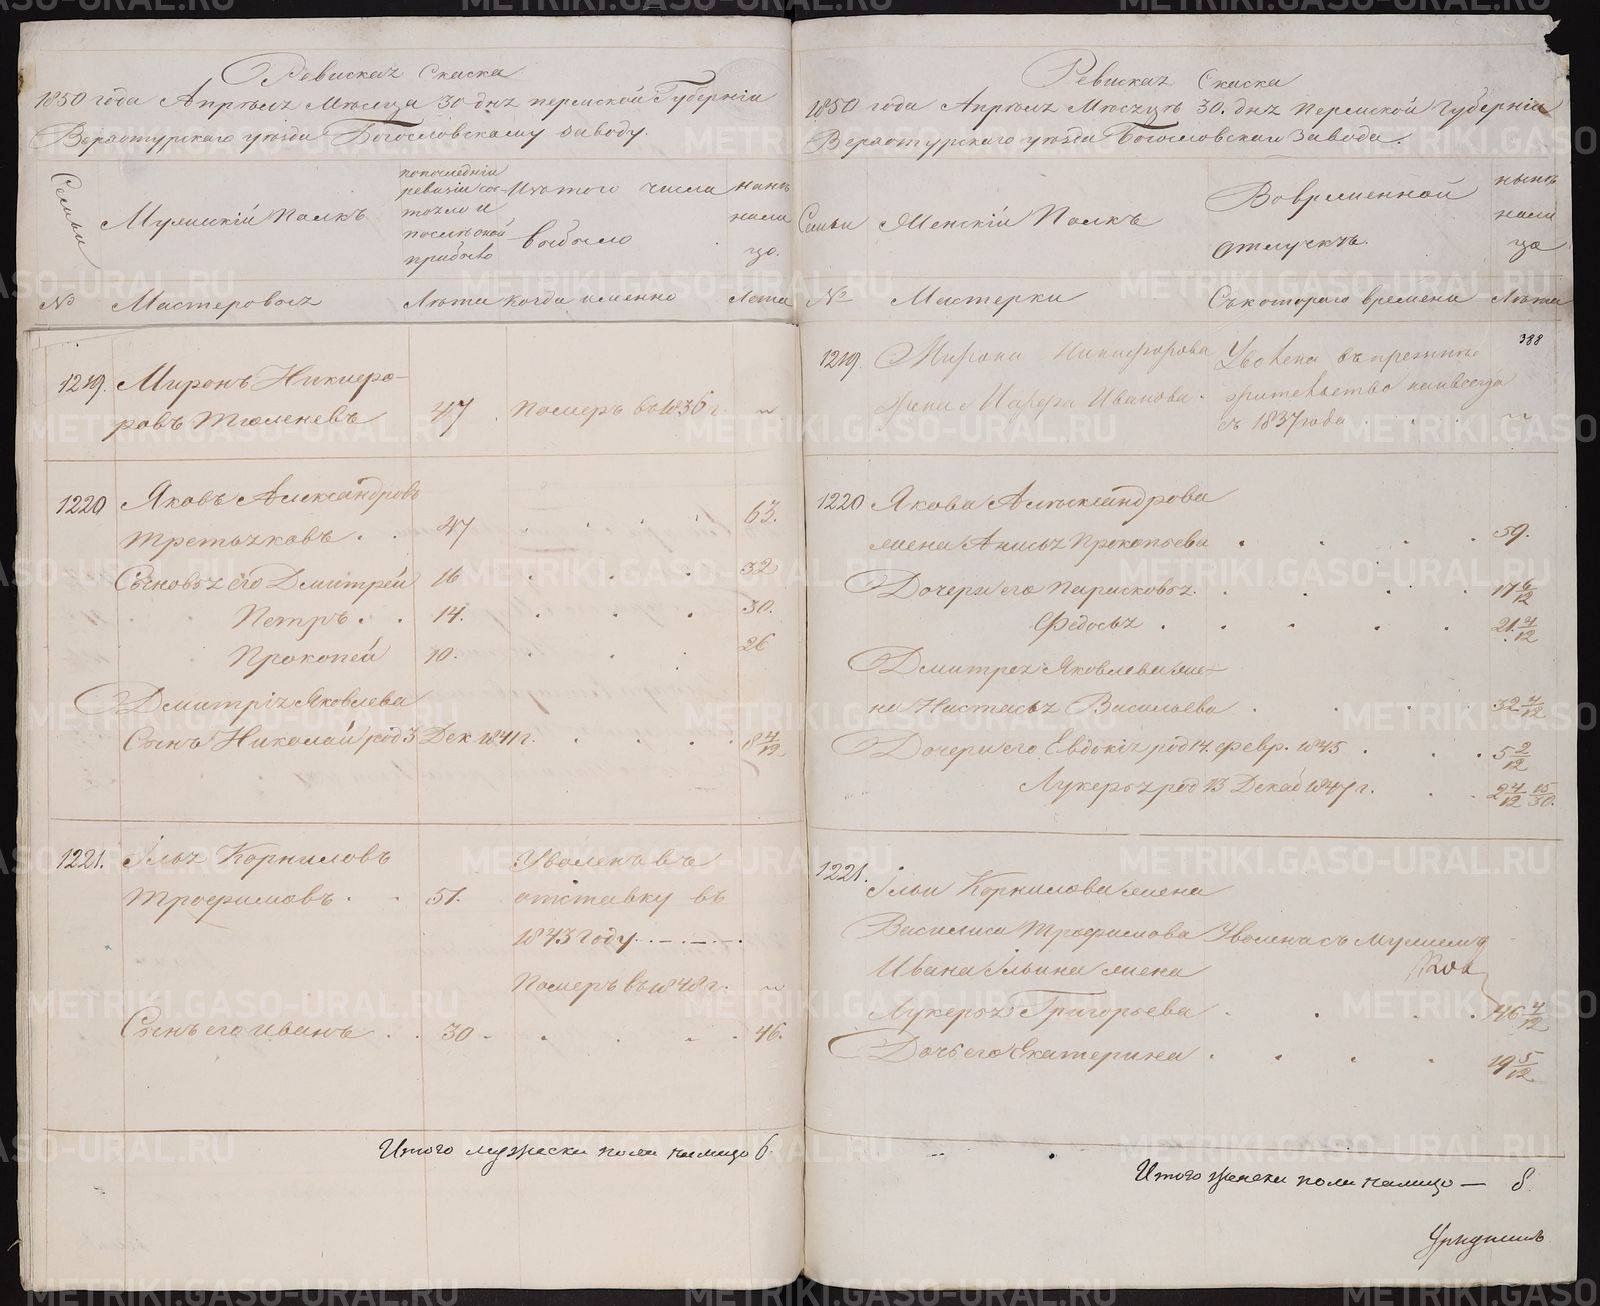 Ревиская Скаска
1850 года Апреля Месяца 30 дня пермской Губерніи
Верхотурскаго уезда Богословскому заводу.
Семьи
Мужискій Полкъ
попоследніи
ревизіи сос-
тояло и
после оной
прибыло
Изъ того числа
выбыло
ныне
нали
цо.
№ Мастеровыя
Лета
когда именно
Лета
1219. Миронъ Никиеро-
ровъ Тюленевъ 47. Померъ въ 1836 г. ~
1220 Яковъ Александровъ
Третьяковъ . . 47 . . . . 63.
Сыновья его Дмитрей 16 . . . 32
Петръ . . 14. . . . 30.
Прокопей 10. . . . 26
Дмитрія Яковлева
Сынъ Николай род 3 Дек 1841 г. . . . . 8 4/12
1221. Ілья Корниловъ Уволенъ въ
Трофимовъ . . 51. отставку въ
1843 году . . – . – .
Померъ въ 1848 г. ~
Сынъ его Иванъ . . 30 . . . . . 46.
Итого мужеска пола налицо 6.
Ревиская Скаска
1850 года Апреля Месяцъ 30. дня Пермской Губерніи
Верхотурскаго уезда Богословская Завода.
Семьи
Женскій Полкъ
Вовременной
отлучкъ.
ныне
нали
цо
№ Мастерки
Съкотораго времени
Лета
388
1219. Мирона Никифорова Уволена въ
жена Ивановa . жительство навсегда
съ 1837 года . . . ~
1220 Якова Александрова
жена Анисья Прокопьева . . . . 59.
Дочери его Парасковья . . . . 17 6/12
Федосья . . . . . 21 4/12
Дмитрея Яковлева же-
на Настасья Васильева . . . . 32 4/12
Дочери его Евдокія род 14. февр. 1845 . . . 5 2/12
Лукерья род 13 Декаб 1847 г. . . 2 4/12 15/30.
1221. Ільи Корнилова жена
Василиса Трофимова Уволена съ мужемъ
Ивана Ільина жена
Лукерья Григорьева . . . . 46 4/12
Дочь его Екатерина . . . . 19 5/12
Итого женска пола налицо — 8
METRIKI.GASO-URAL.RU